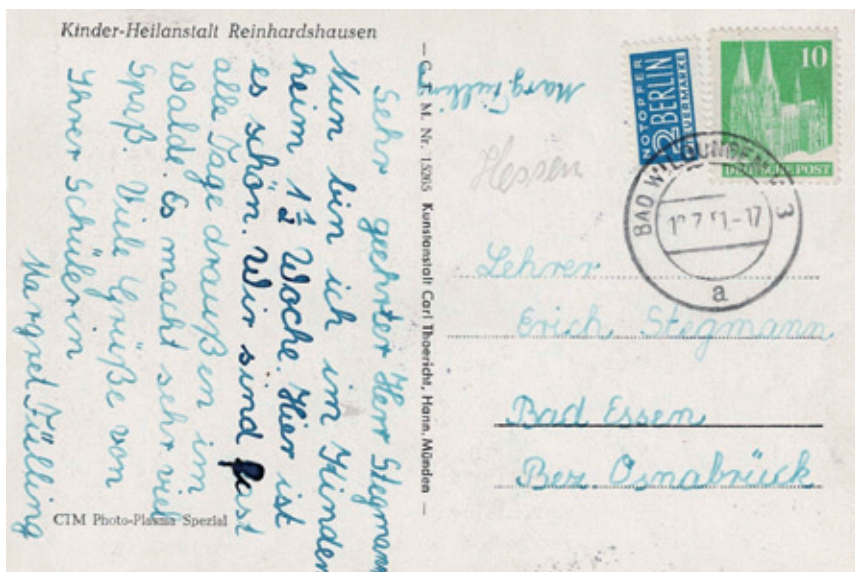 Kinder-Heilanstalt Reinhardshausen
Sehr geehrter Herr Stegmann
Nun bin ich im Kinder
heim 1 1/2 Woche. Hier ist
es schön. Wir sind fast
alle Tage draußen im
Walde. Es macht sehr viel
Spaß. Viele Grüße von
Ihrer Schülerin
Margret Fülling
CTM Photo-Plasma Spezial
— C. T. M. Nr. 15205 Kunstanstalt Carl Thoericht, Hann. Münden —
Marg. Fülling
Hessen
NOTOPFER
2 BERLIN
STEUERMARKE
10
DEUTSCHE POST
BAD WILDUNGEN 3
7.51.-17
a
Lehrer
Erich Stegmann
Bad Essen
Bez. Osnabrück